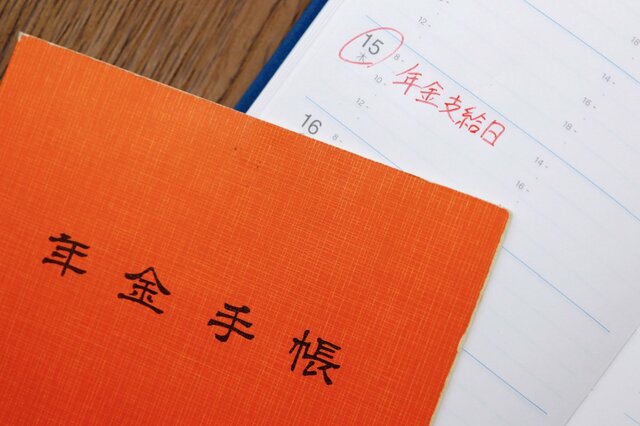 12-
18-
15
木
8-
10-
12-
年金支給日
14-
16-
18-
16
8-
10-
12-
14-
16-
年金手帳